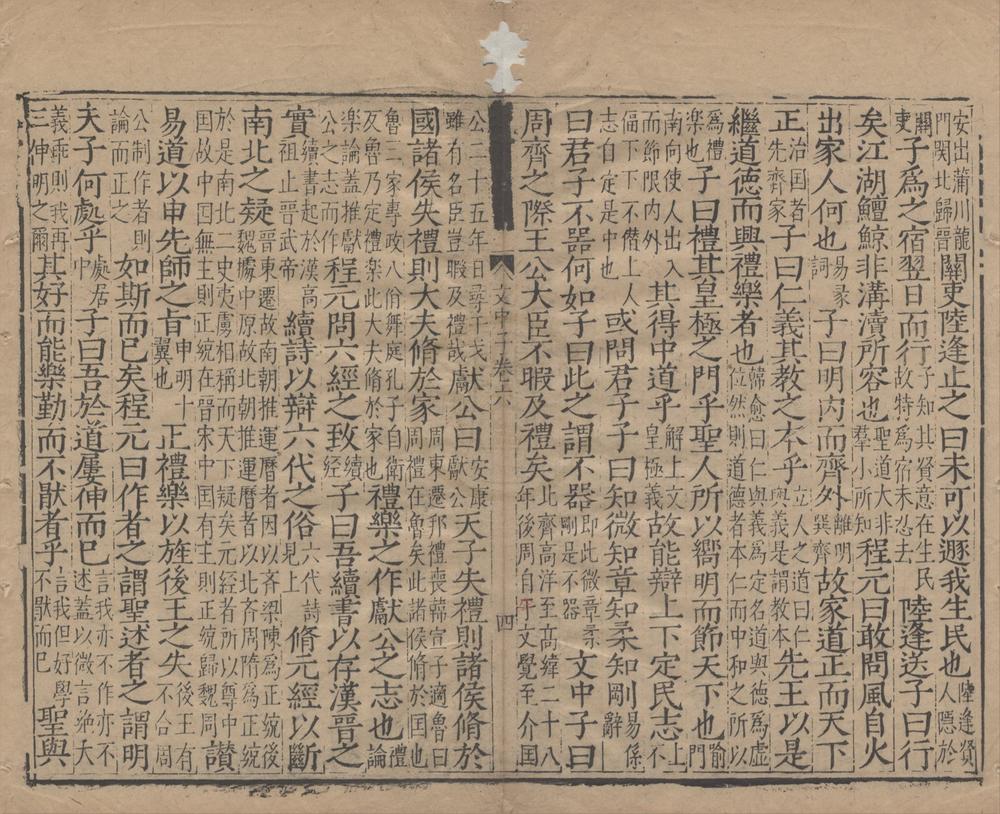 安出蒲川龍門関北歸晉關吏陸逢止之曰未可以遯我生民也陸逢賢人隱於
關吏子爲之宿翌日而行子知其賢意在生民故特爲宿未忍去陸逢送子曰行
矣江湖鱣鯨非溝瀆所容也聖道大非羣小所知程元曰敢問風自火
出家人何也易彖詞子曰明内而齊外離明巽齊故家道正而天下
正治国者先齊家子曰仁義其教之本乎立人之道曰仁與義是謂教本先王以是
繼道德而興禮樂者也韓愈曰仁與義爲定名道與德爲虚位然則道德者本仁而中和之所以
爲禮楽也子曰禮其皇極之門乎聖人所以嚮明而節天下也喻門
南向使人出入而節限内外其得中道乎解上文皇極義故能辯上下定民志上不
偪下下不僣上人志自定是中也或問君子子曰知微知章知柔知剛易係辭
曰君子不器何如子曰此之謂不器即此微章柔剛是不器文中子曰
周齊之際王公大臣不暇及禮矣北齊高洋至高緯二十八年後周自宇文覺至介国
文中子卷六 四
公二十五年日尋干戈雖有名臣豈暇及禮哉獻公曰安康獻公天子失禮則諸侯脩於
國諸侯失禮則大夫脩於家周東遷邦禮喪韓宣子適魯曰周禮在魯矣此諸侯脩於国也
魯三家專政八佾舞庭孔子自衛反魯乃定禮楽此大夫脩於家也禮樂之作獻公之志也禮論
楽論蓋推獻公之志而作程元問六經之致續經子曰吾續書以存漢晉之
實續書起於漢高祖止晉武帝續詩以辯六代之俗六代詩見上脩元經以斷
南北之疑晉東遷故南朝推運曆者因以齊梁陳爲正綂後魏據中原故北朝推運曆者以北齊周隋爲正綂
於是南北二史夷虜相稱而天下疑矣元經者所以尊中国故中国無主則正綂在晉宋中国有主則正綂歸魏周讃
易道以申先師之旨申明十翼也正禮樂以旌後王之失後王有不合周
公制作者則論而正之如斯而已矣程元曰作者之謂聖述者之謂明
夫子何處乎處居中子曰吾於道屢伸而已言我亦不作亦不述蓋以微言絶大
義乖則我再三伸明之爾其好而能樂勤而不猒者乎言我但好學不猒而已聖與